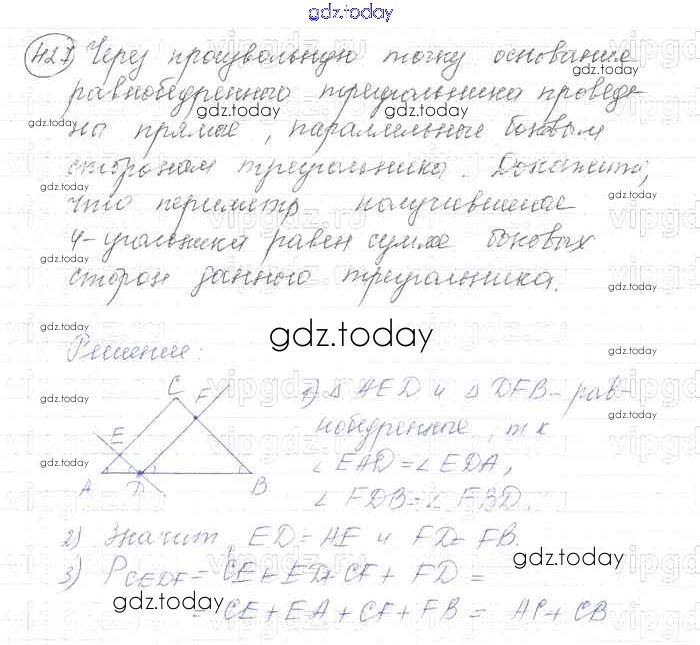 gdz.today
427 Через произвольную точку основания
равнобедренного треугольника проведе-
ны прямые, параллельные боковым
сторонам треугольника. Докажите,
что периметр получившегося
4-угольника равен сумме боковых
сторон данного треугольника.
gdz.today
Решение:
C F
E
A D B
1) △ AED и △ DFB - рав-
нобедренные, т к
∠ EAD = ∠ EDA,
∠ FDB = ∠ FBD.
2) Значит, ED = AE и FD = FB.
3) P CEDF = CE + ED + CF + FD =
= CE + EA + CF + FB = AC + CB
gdz.today